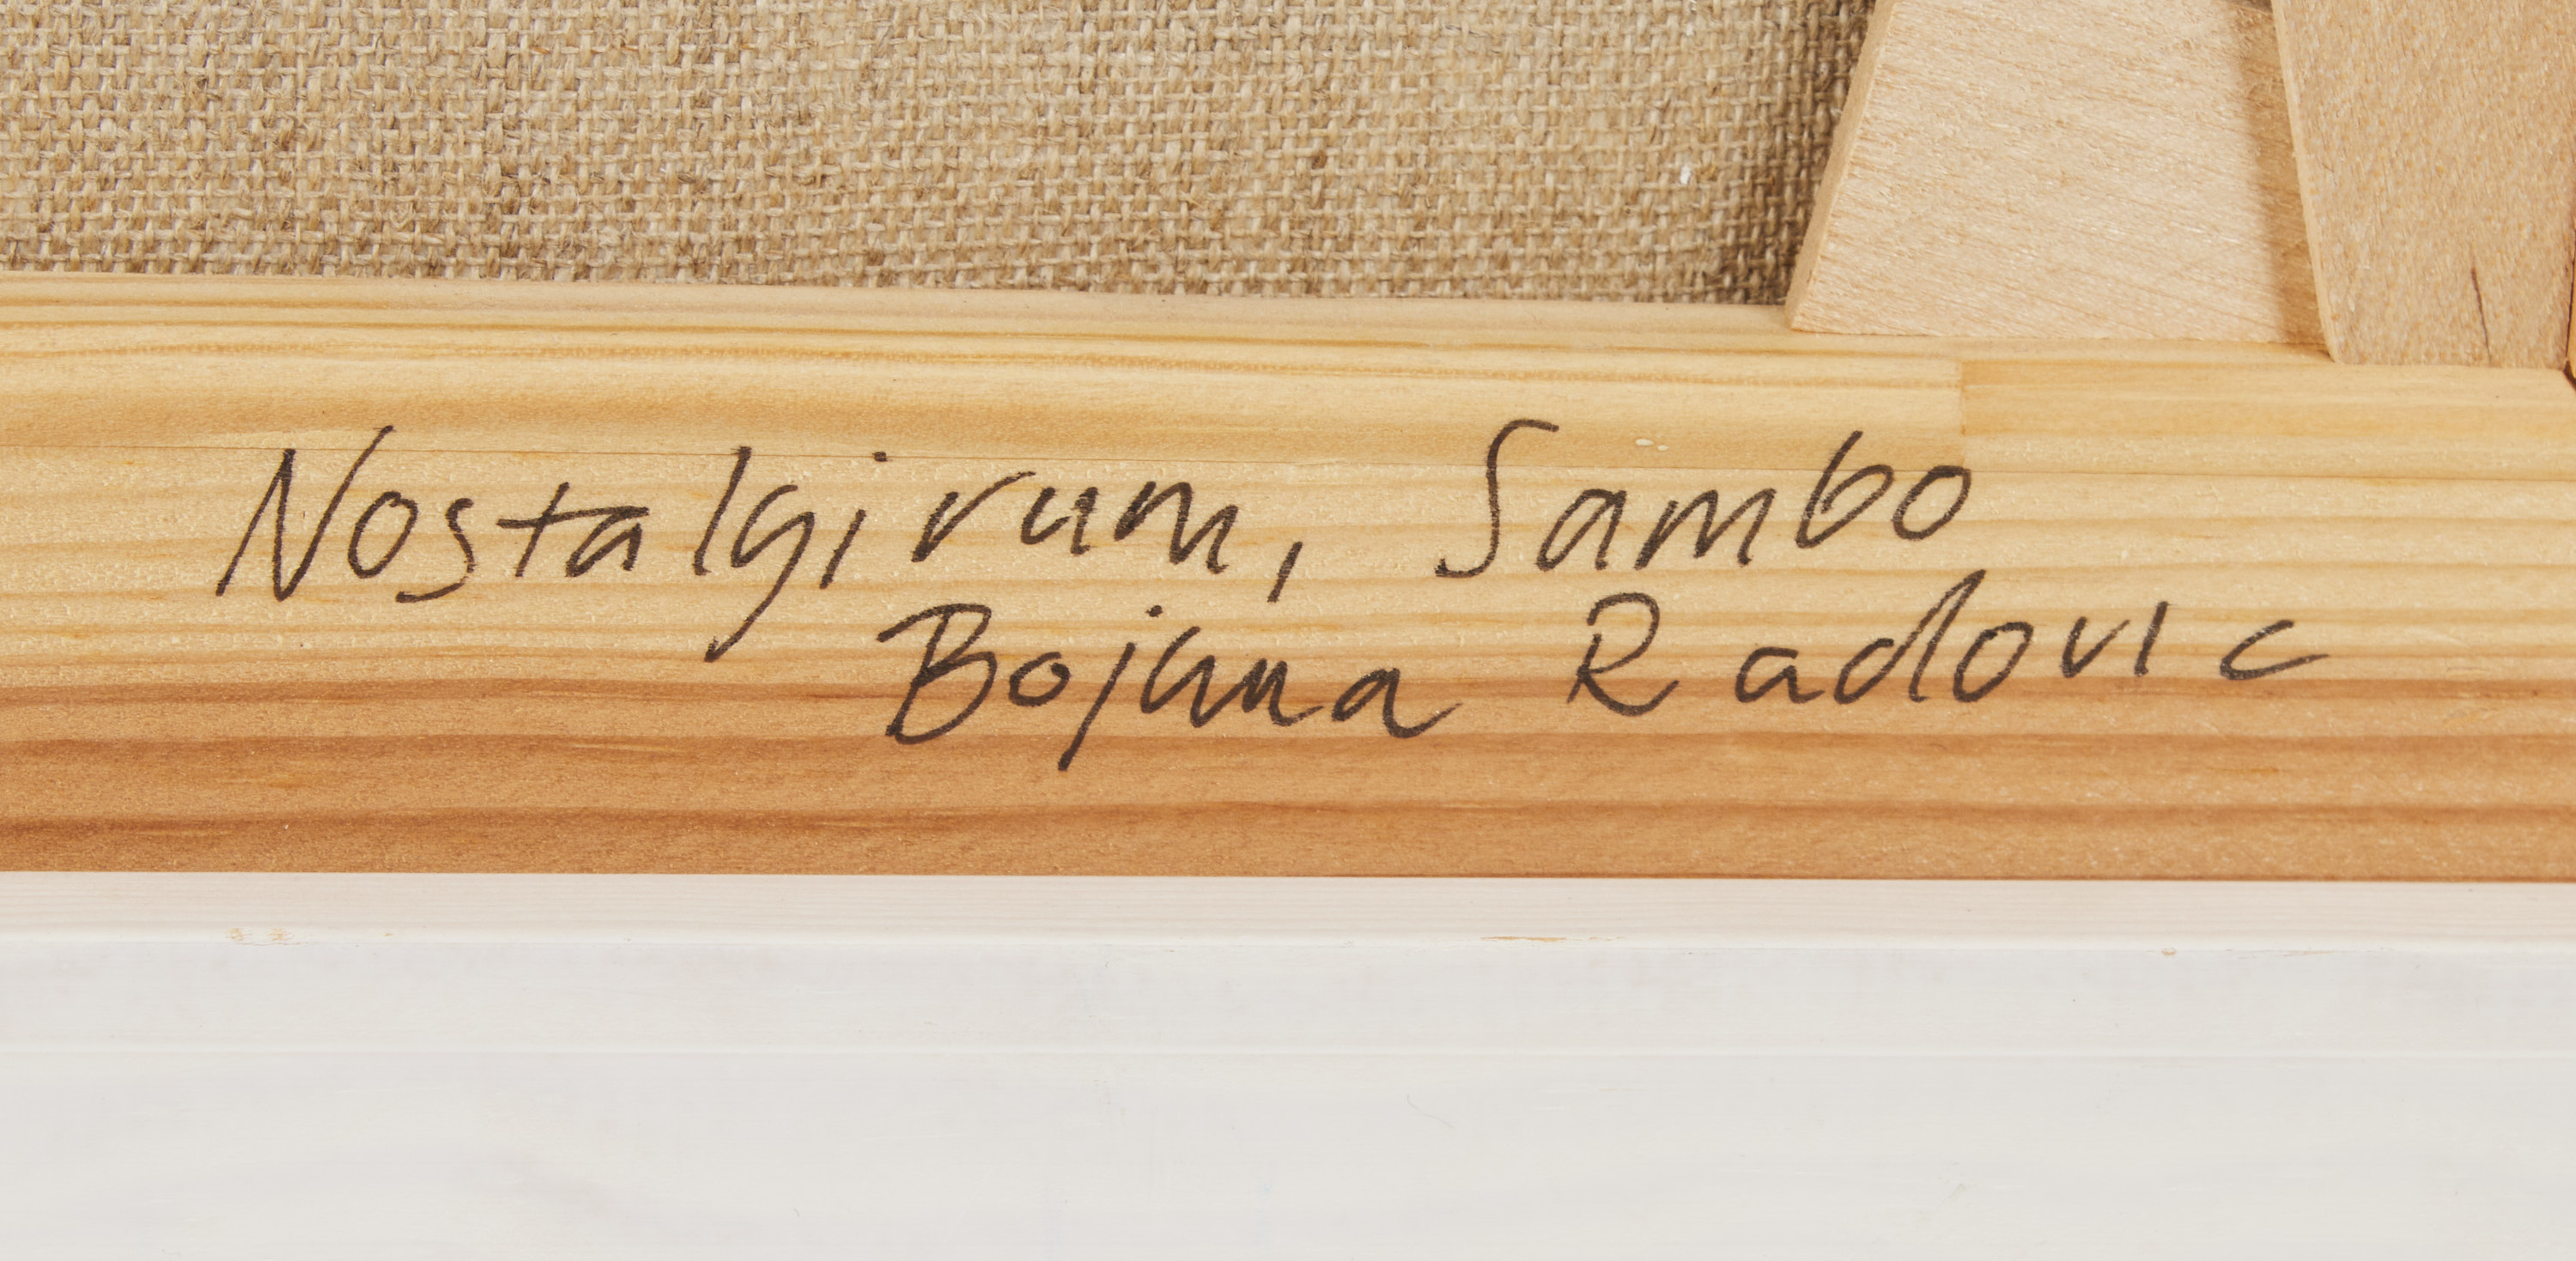 Nostalgirum, Sambo
Bojana Radovic